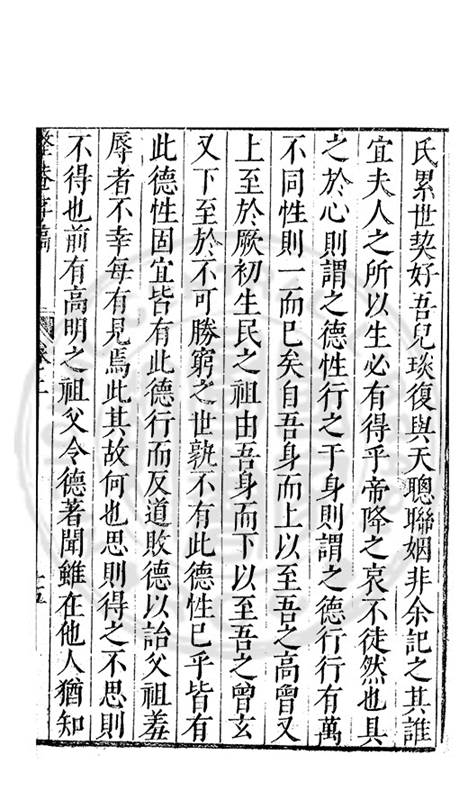 氏累世契好吾兒琰復與天聰聯姻非余記之其誰
宜夫人之所以生必有得乎帝降之衷不徒然也具
之於心則謂之德性行之于身則謂之德行行有萬
不同性則一而已矣自吾身而上以至吾之高曾又
上至於厥初生民之祖由吾身而下以至吾之曾玄
又下至於不可勝窮之世孰不有此德性已乎皆有
此德性固宜皆有此德行而反道敗德以詒父祖羞
辱者不幸每有見焉此其故何也思則得之不思則
不得也前有高明之祖父令德著聞雖在他人猶知
卷之二
十五